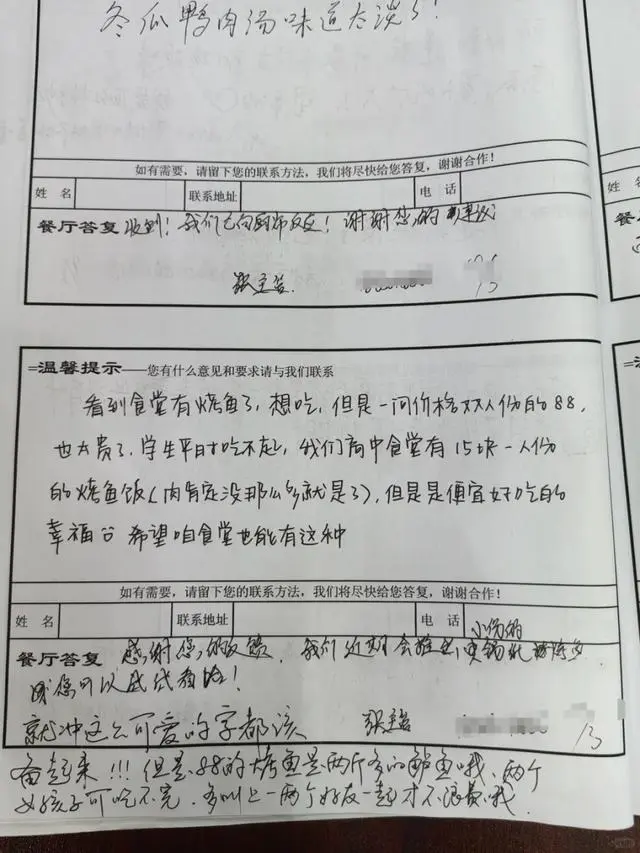 冬瓜鸭肉汤味道太淡了!
如有需要,请留下您的联系方法,我们将尽快给您答复,谢谢合作!
姓 名 联系地址 电 话
餐厅答复 收到!我们已向厨师反应!谢谢您的建议
张主管
温馨提示——您有什么意见和要求请与我们联系
看到食堂有烤鱼了,想吃,但是一问价格双人份的88,
也太贵了,学生平时吃不起,我们高中食堂有15块一人份
的烤鱼饭(肉肯定没那么多就是了),但是是便宜好吃的
幸福 希望咱食堂也能有这种
如有需要,请留下您的联系方法,我们将尽快给您答复,谢谢合作!
姓 名 联系地址 电 话
小份的
餐厅答复 感谢您的反馈,我们近期会推出
到您可以试试看哈!
就冲这么可爱的字都该 张主管 13
奋起来!!!但是88的烤鱼是两斤多的鲈鱼哦,两个
女孩子可吃不完,多叫上一两个好友一起才不浪费哦